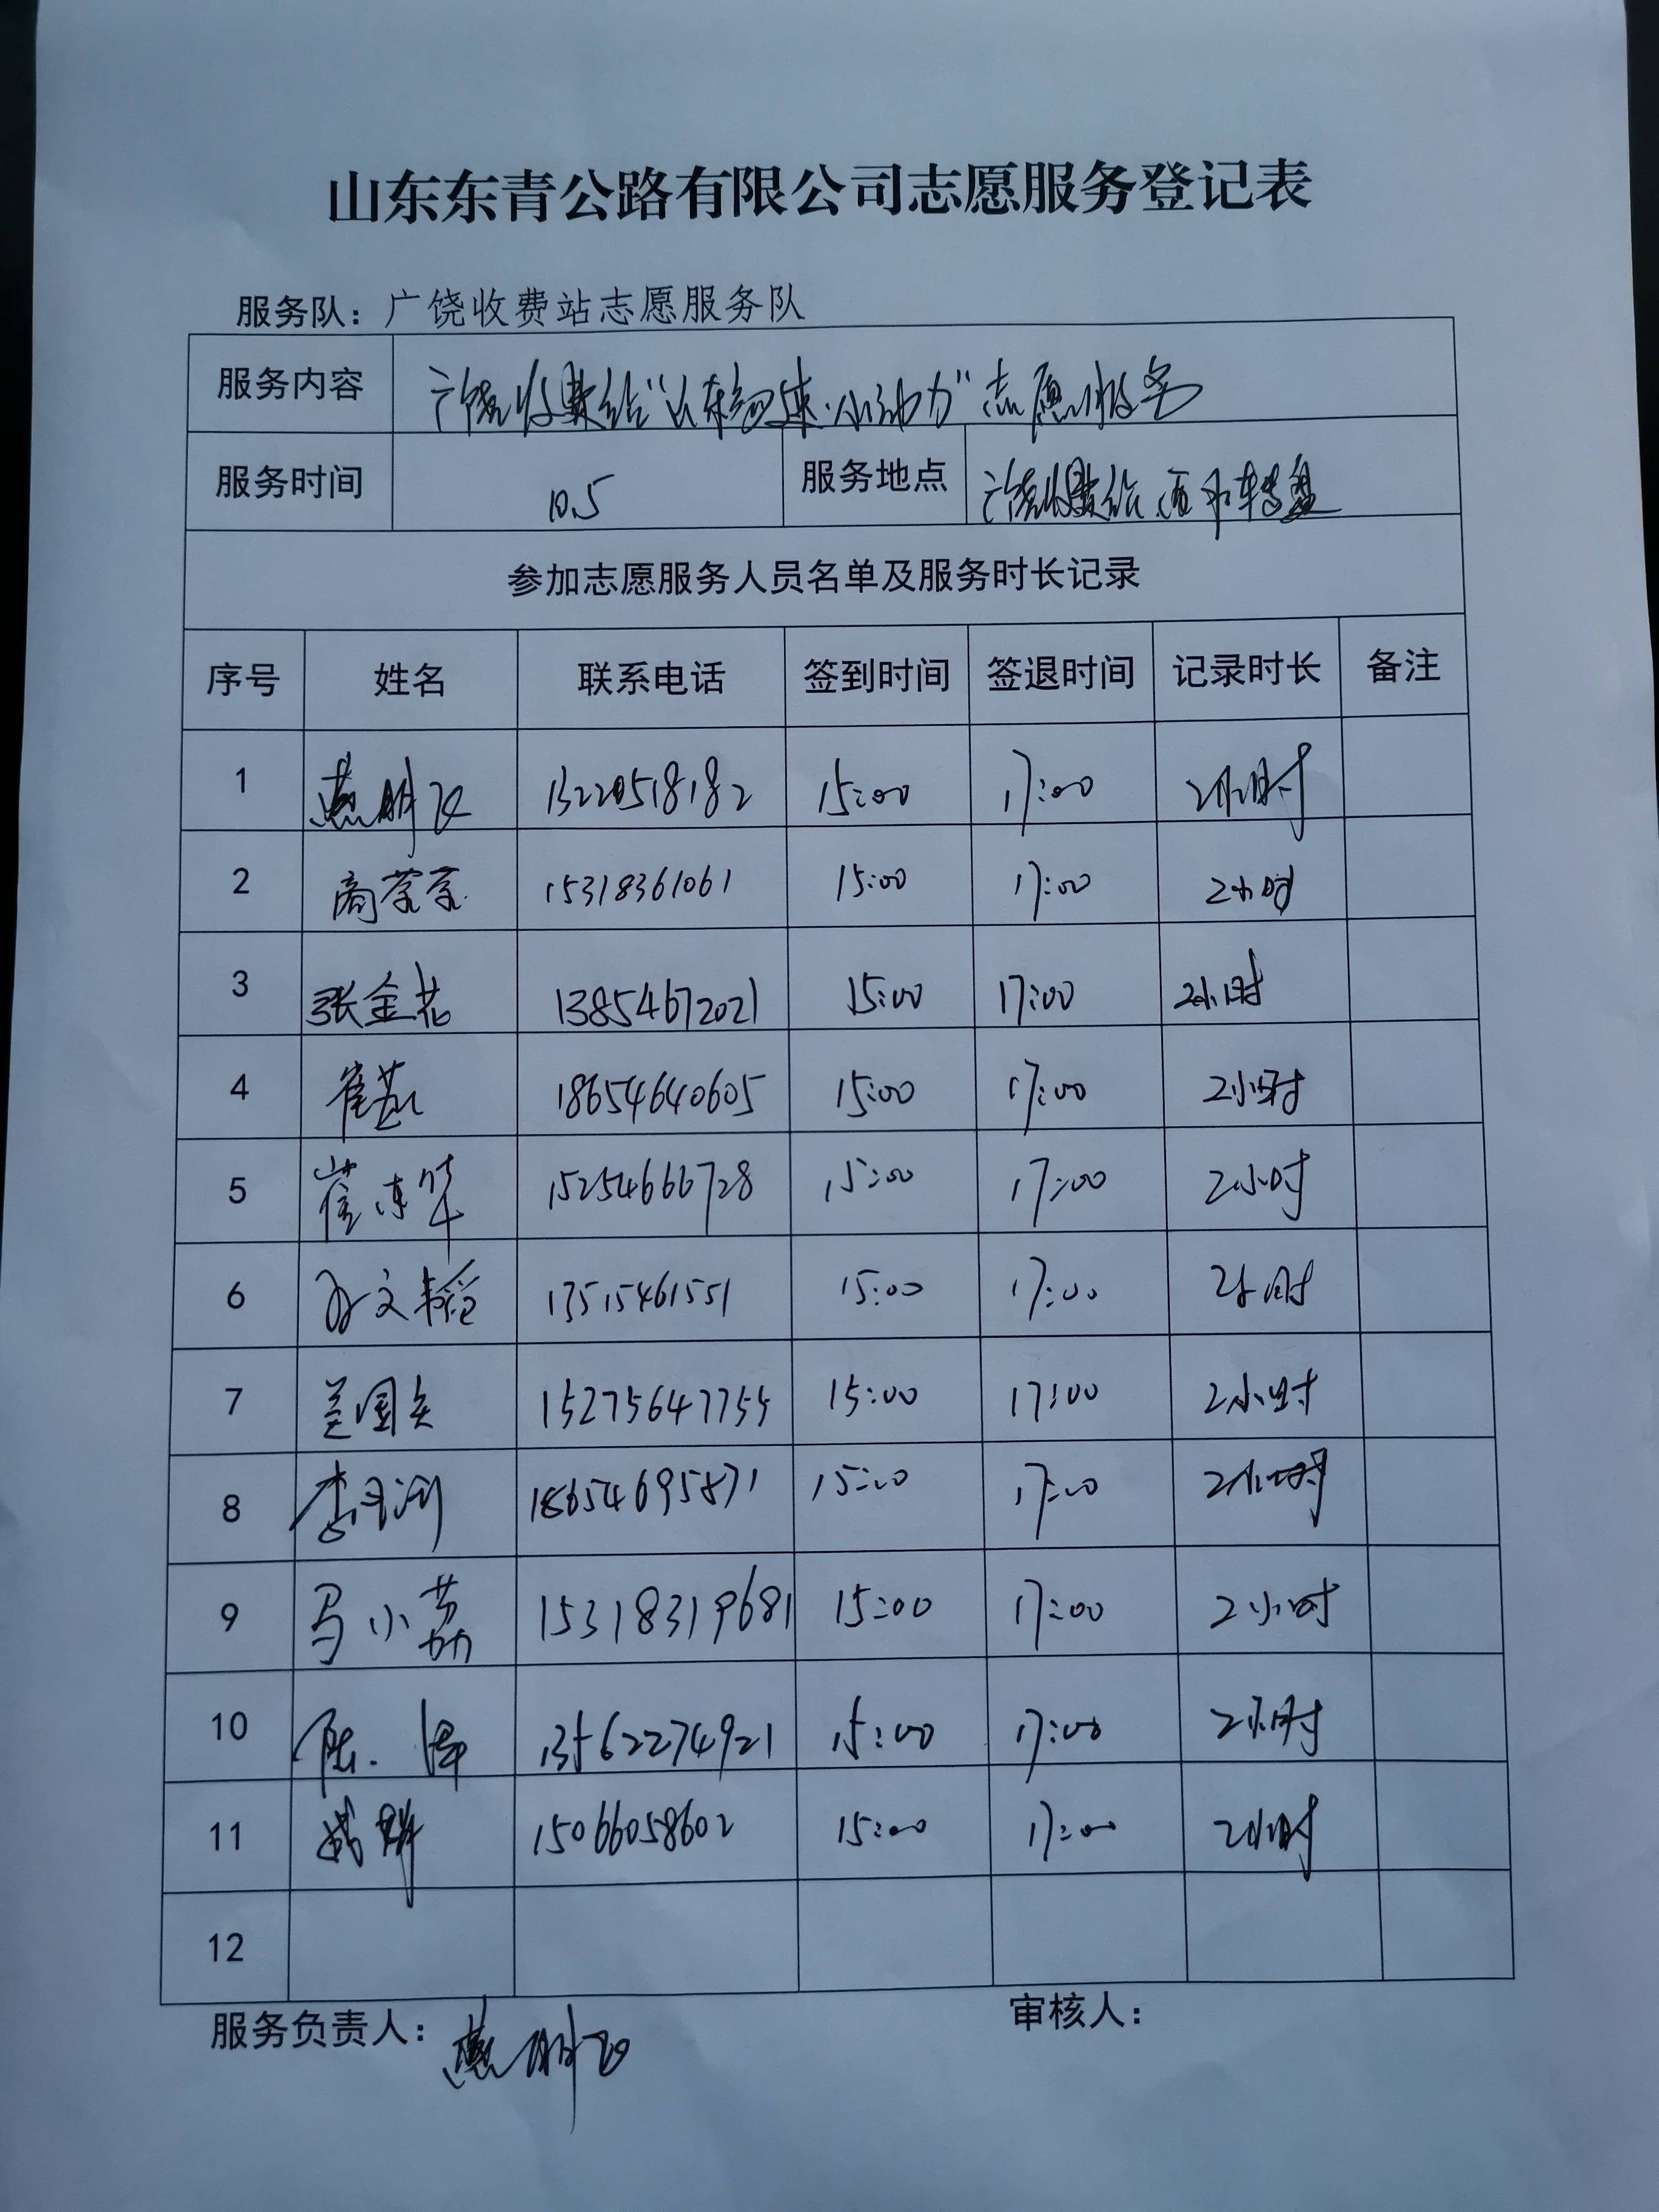 山东东青公路有限公司志愿服务登记表
服务队：广饶收费站志愿服务队
服务内容 广饶收费站“山东高速·小动力”志愿服务
服务时间 10.5 服务地点 广饶收费站西转盘
参加志愿服务人员名单及服务时长记录
序号 姓名 联系电话 签到时间 签退时间 记录时长 备注
1 燕明 13220518182 15:00 17:00 2小时
2 商蒙蒙 15318361061 15:00 17:00 2小时
3 张金花 13854672021 15:00 17:00 2小时
4 崔燕 18654640605 15:00 17:00 2小时
5 崔 华 15254666728 15:00 17:00 2小时
6 孙文韬 13515461551 15:00 17:00 2小时
7 兰国 15275647755 15:00 17:00 2小时
8 李 18654695871 15:00 17:00 2小时
9 马小荔 15318319681 15:00 17:00 2小时
10 陈 13562274921 15:00 17:00 2小时
11 15066058602 15:00 17:00 2小时
12
服务负责人：燕明 审核人：